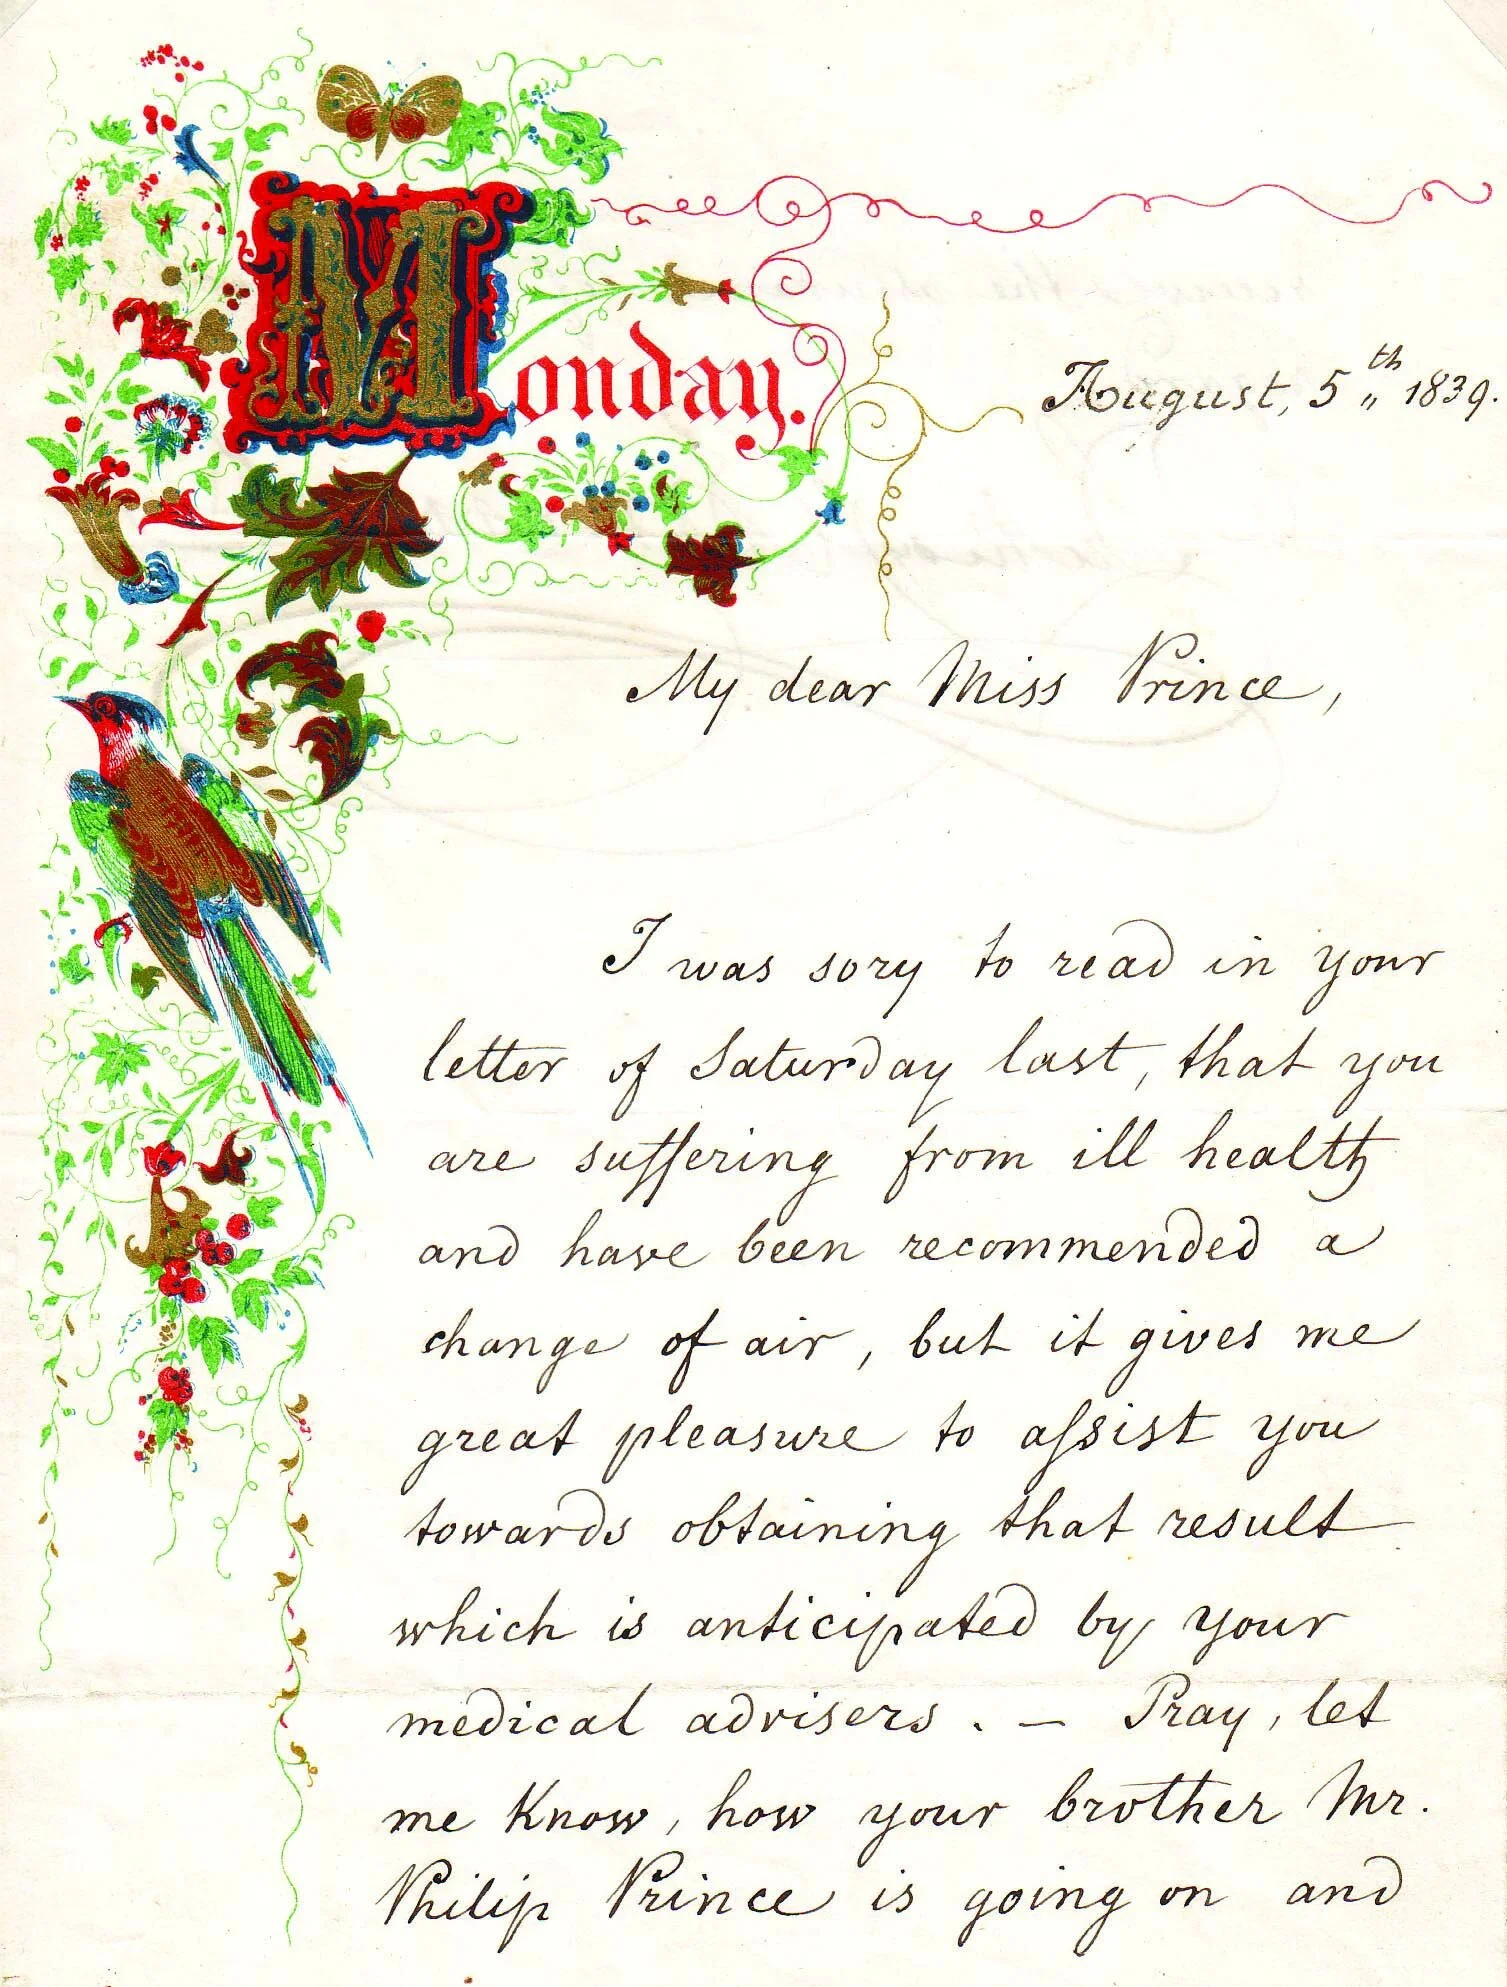 Monday.
August, 5th 1839.
My dear Miss Prince,
I was sory to read in your
letter of Saturday last, that you
are suffering from ill health
and have been recommended a
change of air, but it gives me
great pleasure to assist you
towards obtaining that result
which is anticipated by your
medical advisers. — Pray, let
me know, how your brother Mr.
Philip Prince is going on and